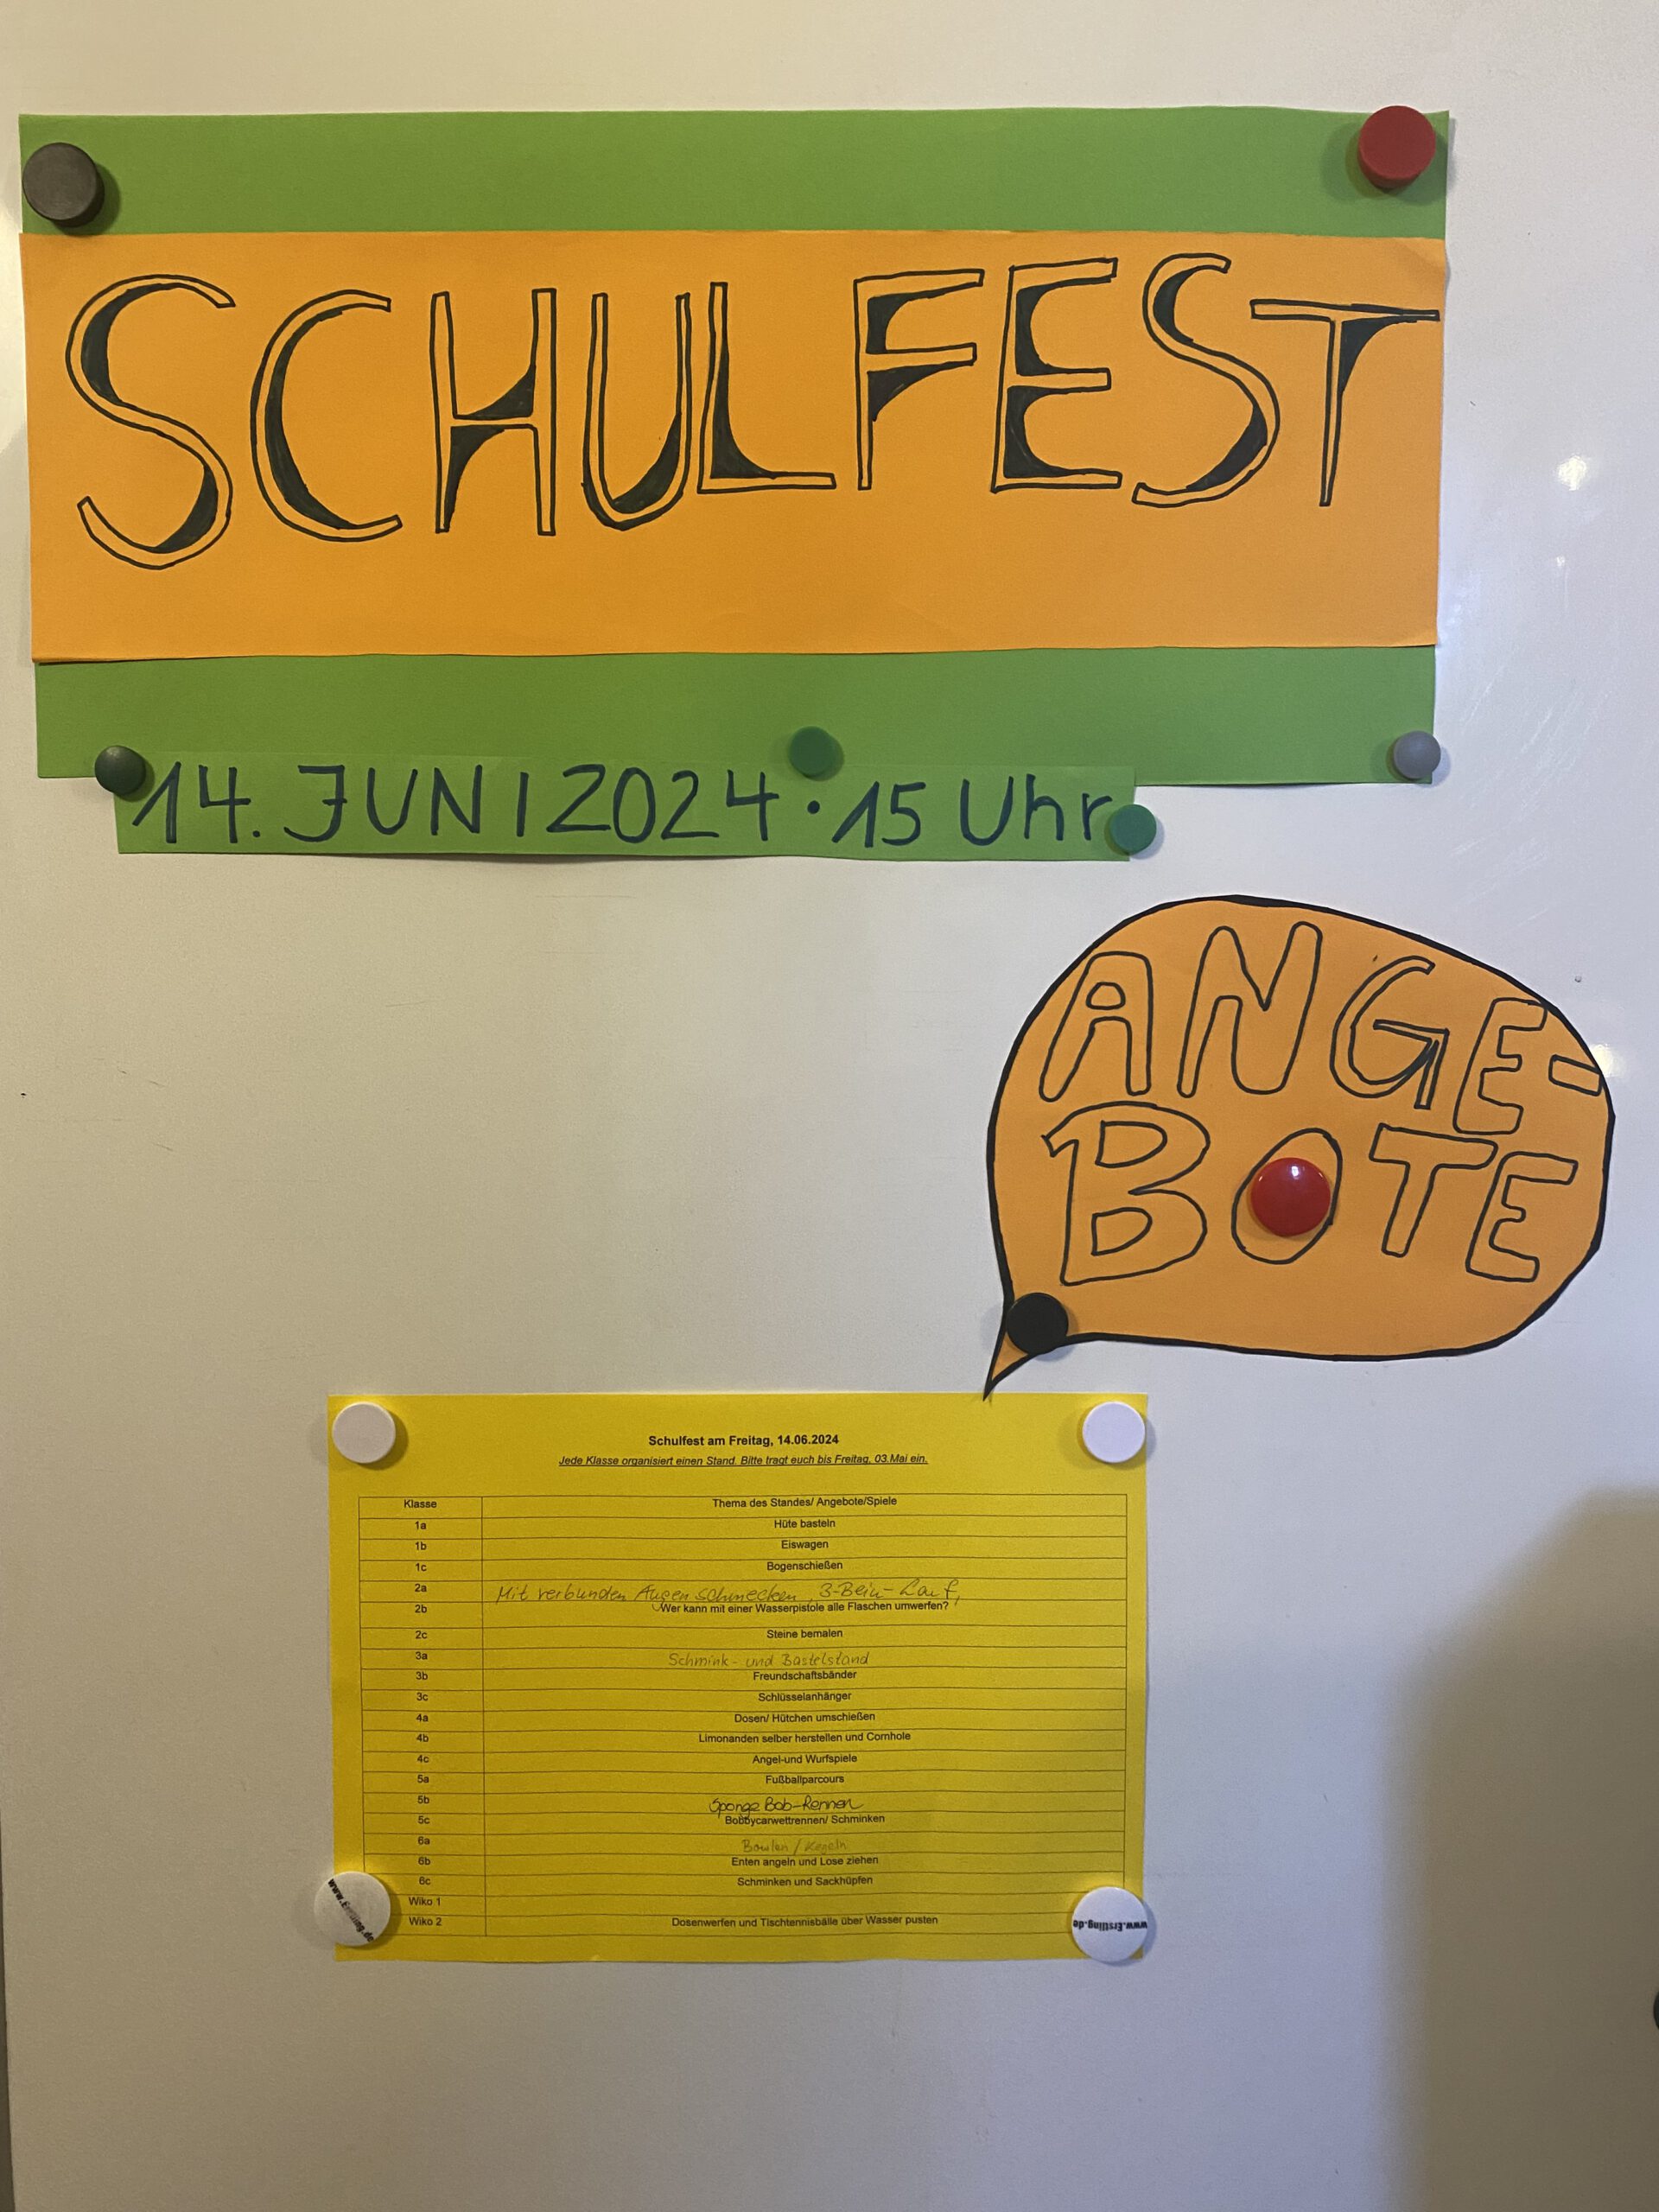 SCHULFEST
14. JUNI 2024 • 15 Uhr
ANGE-
BOTE
Schulfest am Freitag, 14.06.2024
Jede Klasse organisiert einen Stand. Bitte tragt euch bis Freitag, 03.Mai ein.
Klasse Thema des Standes/ Angebote/Spiele
1a Hüte basteln
1b Eiswagen
1c Bogenschießen
2a Mit verbunden Augen schmecken, 3-Bein-Lauf,
2b Wer kann mit einer Wasserpistole alle Flaschen umwerfen?
2c Steine bemalen
3a Schmink- und Bastelstand
3b Freundschaftsbänder
3c Schlüsselanhänger
4a Dosen/ Hütchen umschießen
4b Limonanden selber herstellen und Cornhole
4c Angel-und Wurfspiele
5a Fußballparcours
5b Sponge Bob-Rennen
5c Bobbycarwettrennen/ Schminken
6a Bowlen / Kegeln
6b Enten angeln und Lose ziehen
6c Schminken und Sackhüpfen
Wiko 1
Wiko 2 Dosenwerfen und Tischtennisbälle über Wasser pusten
www.Erstling.de
www.Erstling.de